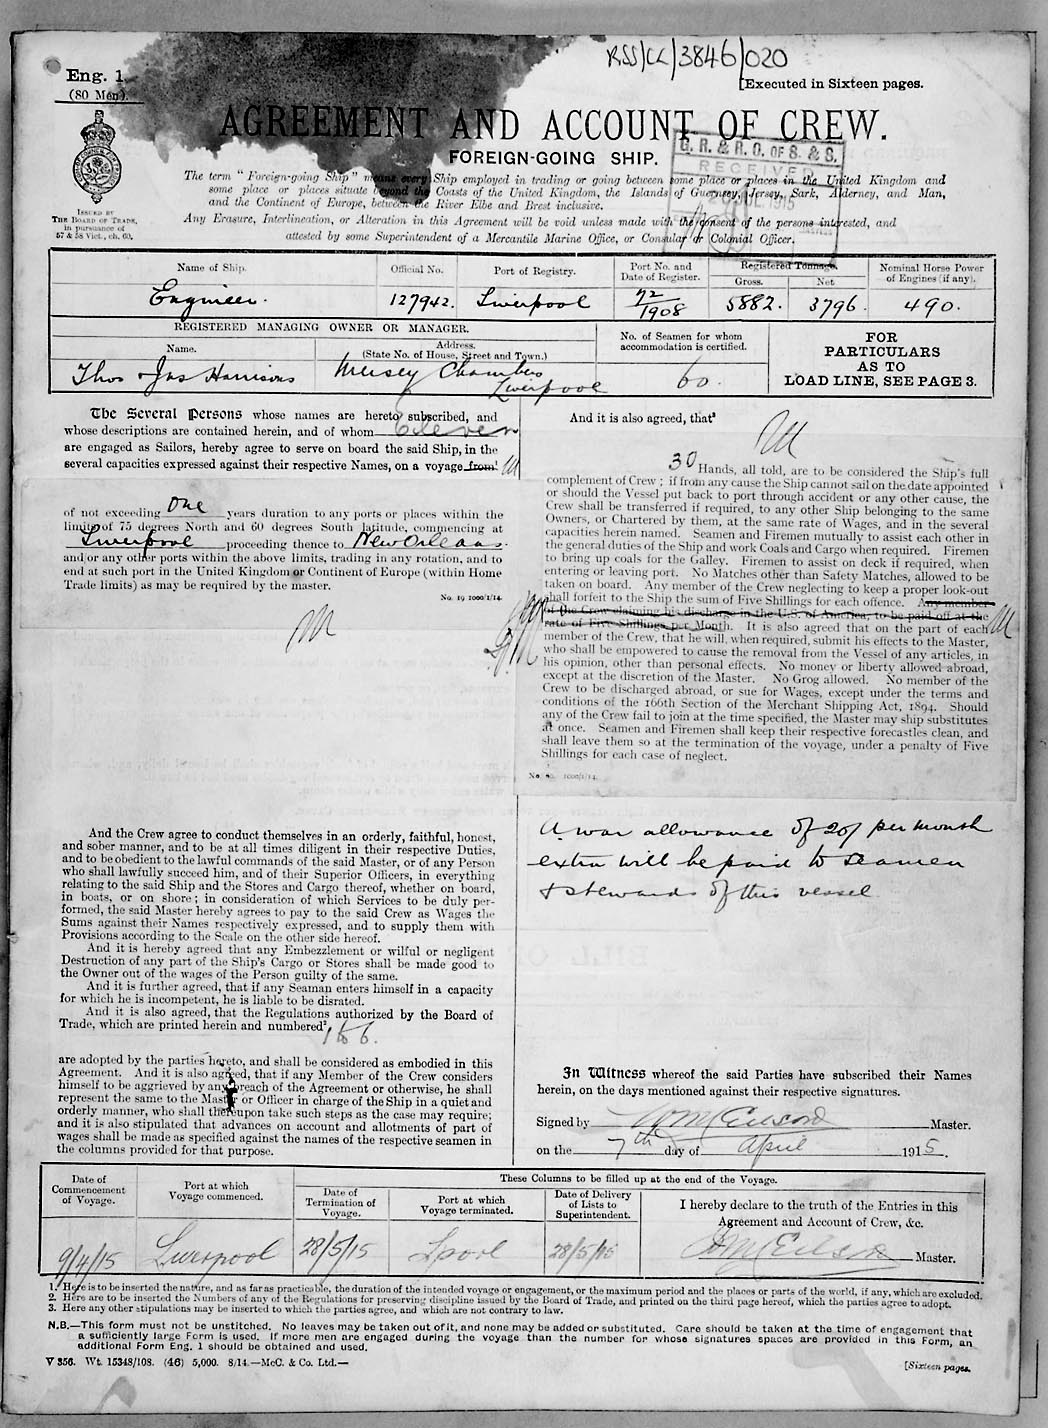 RSS/CL/3846/020
Eng. 1.
(80 Men).
[Executed in Sixteen pages.
AGREEMENT AND ACCOUNT OF CREW.
FOREIGN-GOING SHIP.
G. R. & R. O. OF S. & S.
RECEIVED
JUL. 1915
The term "Foreign-going Ship" means every Ship employed in trading or going between some place or places in the United Kingdom and
some place or places situate beyond the Coasts of the United Kingdom, the Islands of Guernsey, Jersey, Sark, Alderney, and Man,
and the Continent of Europe, between the River Elbe and Brest inclusive.
ISSUED BY
THE BOARD OF TRADE,
in pursuance of
57 & 58 Vict., ch. 60.
Any Erasure, Interlineation, or Alteration in this Agreement will be void unless made with the consent of the persons interested, and
attested by some Superintendent of a Mercantile Marine Office, or Consular or Colonial Officer.
Name of Ship. Official No. Port of Registry. Port No. and Date of Register. Registered Tonnage. Gross. Net. Nominal Horse Power of Engines (if any).
Engineer. 127942. Liverpool 72/1908 5882. 3796. 490.
REGISTERED MANAGING OWNER OR MANAGER.
Name. Address. (State No. of House, Street and Town.)
No. of Seamen for whom accommodation is certified.
FOR
PARTICULARS
AS TO
LOAD LINE, SEE PAGE 3.
Thos & Jas Harrisons Mersey Chambers Liverpool 60.
The Several Persons whose names are hereto subscribed, and
whose descriptions are contained herein, and of whom Eleven
are engaged as Sailors, hereby agree to serve on board the said Ship, in the
several capacities expressed against their respective Names, on a voyage from¹
of not exceeding One years duration to any ports or places within the
limits of 75 degrees North and 60 degrees South latitude, commencing at
Liverpool proceeding thence to New Orleans.
and/or any other ports within the above limits, trading in any rotation, and to
end at such port in the United Kingdom or Continent of Europe (within Home
Trade limits) as may be required by the master.
No. 19 1000/1/14.
And the Crew agree to conduct themselves in an orderly, faithful, honest,
and sober manner, and to be at all times diligent in their respective Duties,
and to be obedient to the lawful commands of the said Master, or of any Person
who shall lawfully succeed him, and of their Superior Officers, in everything
relating to the said Ship and the Stores and Cargo thereof, whether on board,
in boats, or on shore; in consideration of which Services to be duly per-
formed, the said Master hereby agrees to pay to the said Crew as Wages the
Sums against their Names respectively expressed, and to supply them with
Provisions according to the Scale on the other side hereof.
And it is hereby agreed that any Embezzlement or wilful or negligent
Destruction of any part of the Ship's Cargo or Stores shall be made good to
the Owner out of the wages of the Person guilty of the same.
And it is further agreed, that if any Seaman enters himself in a capacity
for which he is incompetent, he is liable to be disrated.
And it is also agreed, that the Regulations authorized by the Board of
Trade, which are printed herein and numbered² 1 to 6.
are adopted by the parties hereto, and shall be considered as embodied in this
Agreement. And it is also agreed, that if any Member of the Crew considers
himself to be aggrieved by any breach of the Agreement or otherwise, he shall
represent the same to the Master or Officer in charge of the Ship in a quiet and
orderly manner, who shall thereupon take such steps as the case may require;
and it is also stipulated that advances on account and allotments of part of
wages shall be made as specified against the names of the respective seamen in
the columns provided for that purpose.
And it is also agreed, that³
30 Hands, all told, are to be considered the Ship's full
complement of Crew; if from any cause the Ship cannot sail on the date appointed
or should the Vessel put back to port through accident or any other cause, the
Crew shall be transferred if required, to any other Ship belonging to the same
Owners, or Chartered by them, at the same rate of Wages, and in the several
capacities herein named. Seamen and Firemen mutually to assist each other in
the general duties of the Ship and work Coals and Cargo when required. Firemen
to bring up coals for the Galley. Firemen to assist on deck if required, when
entering or leaving port. No Matches other than Safety Matches, allowed to be
taken on board. Any member of the Crew neglecting to keep a proper look-out
shall forfeit to the Ship the sum of Five Shillings for each offence. Any member
of the Crew claiming his discharge in the U.S. of America, to be paid off at the
rate of Five Shillings per Month. It is also agreed that on the part of each
member of the Crew, that he will, when required, submit his effects to the Master,
who shall be empowered to cause the removal from the Vessel of any articles, in
his opinion, other than personal effects. No money or liberty allowed abroad,
except at the discretion of the Master. No Grog allowed. No member of the
Crew to be discharged abroad, or sue for Wages, except under the terms and
conditions of the 166th Section of the Merchant Shipping Act, 1894. Should
any of the Crew fail to join at the time specified, the Master may ship substitutes
at once. Seamen and Firemen shall keep their respective forecastles clean, and
shall leave them so at the termination of the voyage, under a penalty of Five
Shillings for each case of neglect.
1000/1/14.
A war allowance of 20/ per month
extra will be paid to seamen
& stewards of this vessel
In Witness whereof the said Parties have subscribed their Names
herein, on the days mentioned against their respective signatures.
Signed by Master.
on the 7th day of April 1915.
These Columns to be filled up at the end of the Voyage.
Date of Commencement of Voyage. Port at which Voyage commenced. Date of Termination of Voyage. Port at which Voyage terminated. Date of Delivery of Lists to Superintendent. I hereby declare to the truth of the Entries in this Agreement and Account of Crew, &c.
9/4/15 Liverpool 28/5/15 Lpool 28/5/15 Master.
1. Here is to be inserted the nature, and as far as practicable, the duration of the intended voyage or engagement, or the maximum period and the places or parts of the world, if any, which are excluded.
2. Here are to be inserted the Numbers of any of the Regulations for preserving discipline issued by the Board of Trade, and printed on the third page hereof, which the parties agree to adopt.
3. Here any other stipulations may be inserted to which the parties agree, and which are not contrary to law.
N.B.—This form must not be unstitched. No leaves may be taken out of it, and none may be added or substituted. Care should be taken at the time of engagement that
a sufficiently large Form is used. If more men are engaged during the voyage than the number for whose signatures spaces are provided in this Form, an
additional Form Eng. 1 should be obtained and used.
V 356. Wt. 15348/108. (46) 5,000. 8/14.—McC. & Co. Ltd.—
[Sixteen pages.